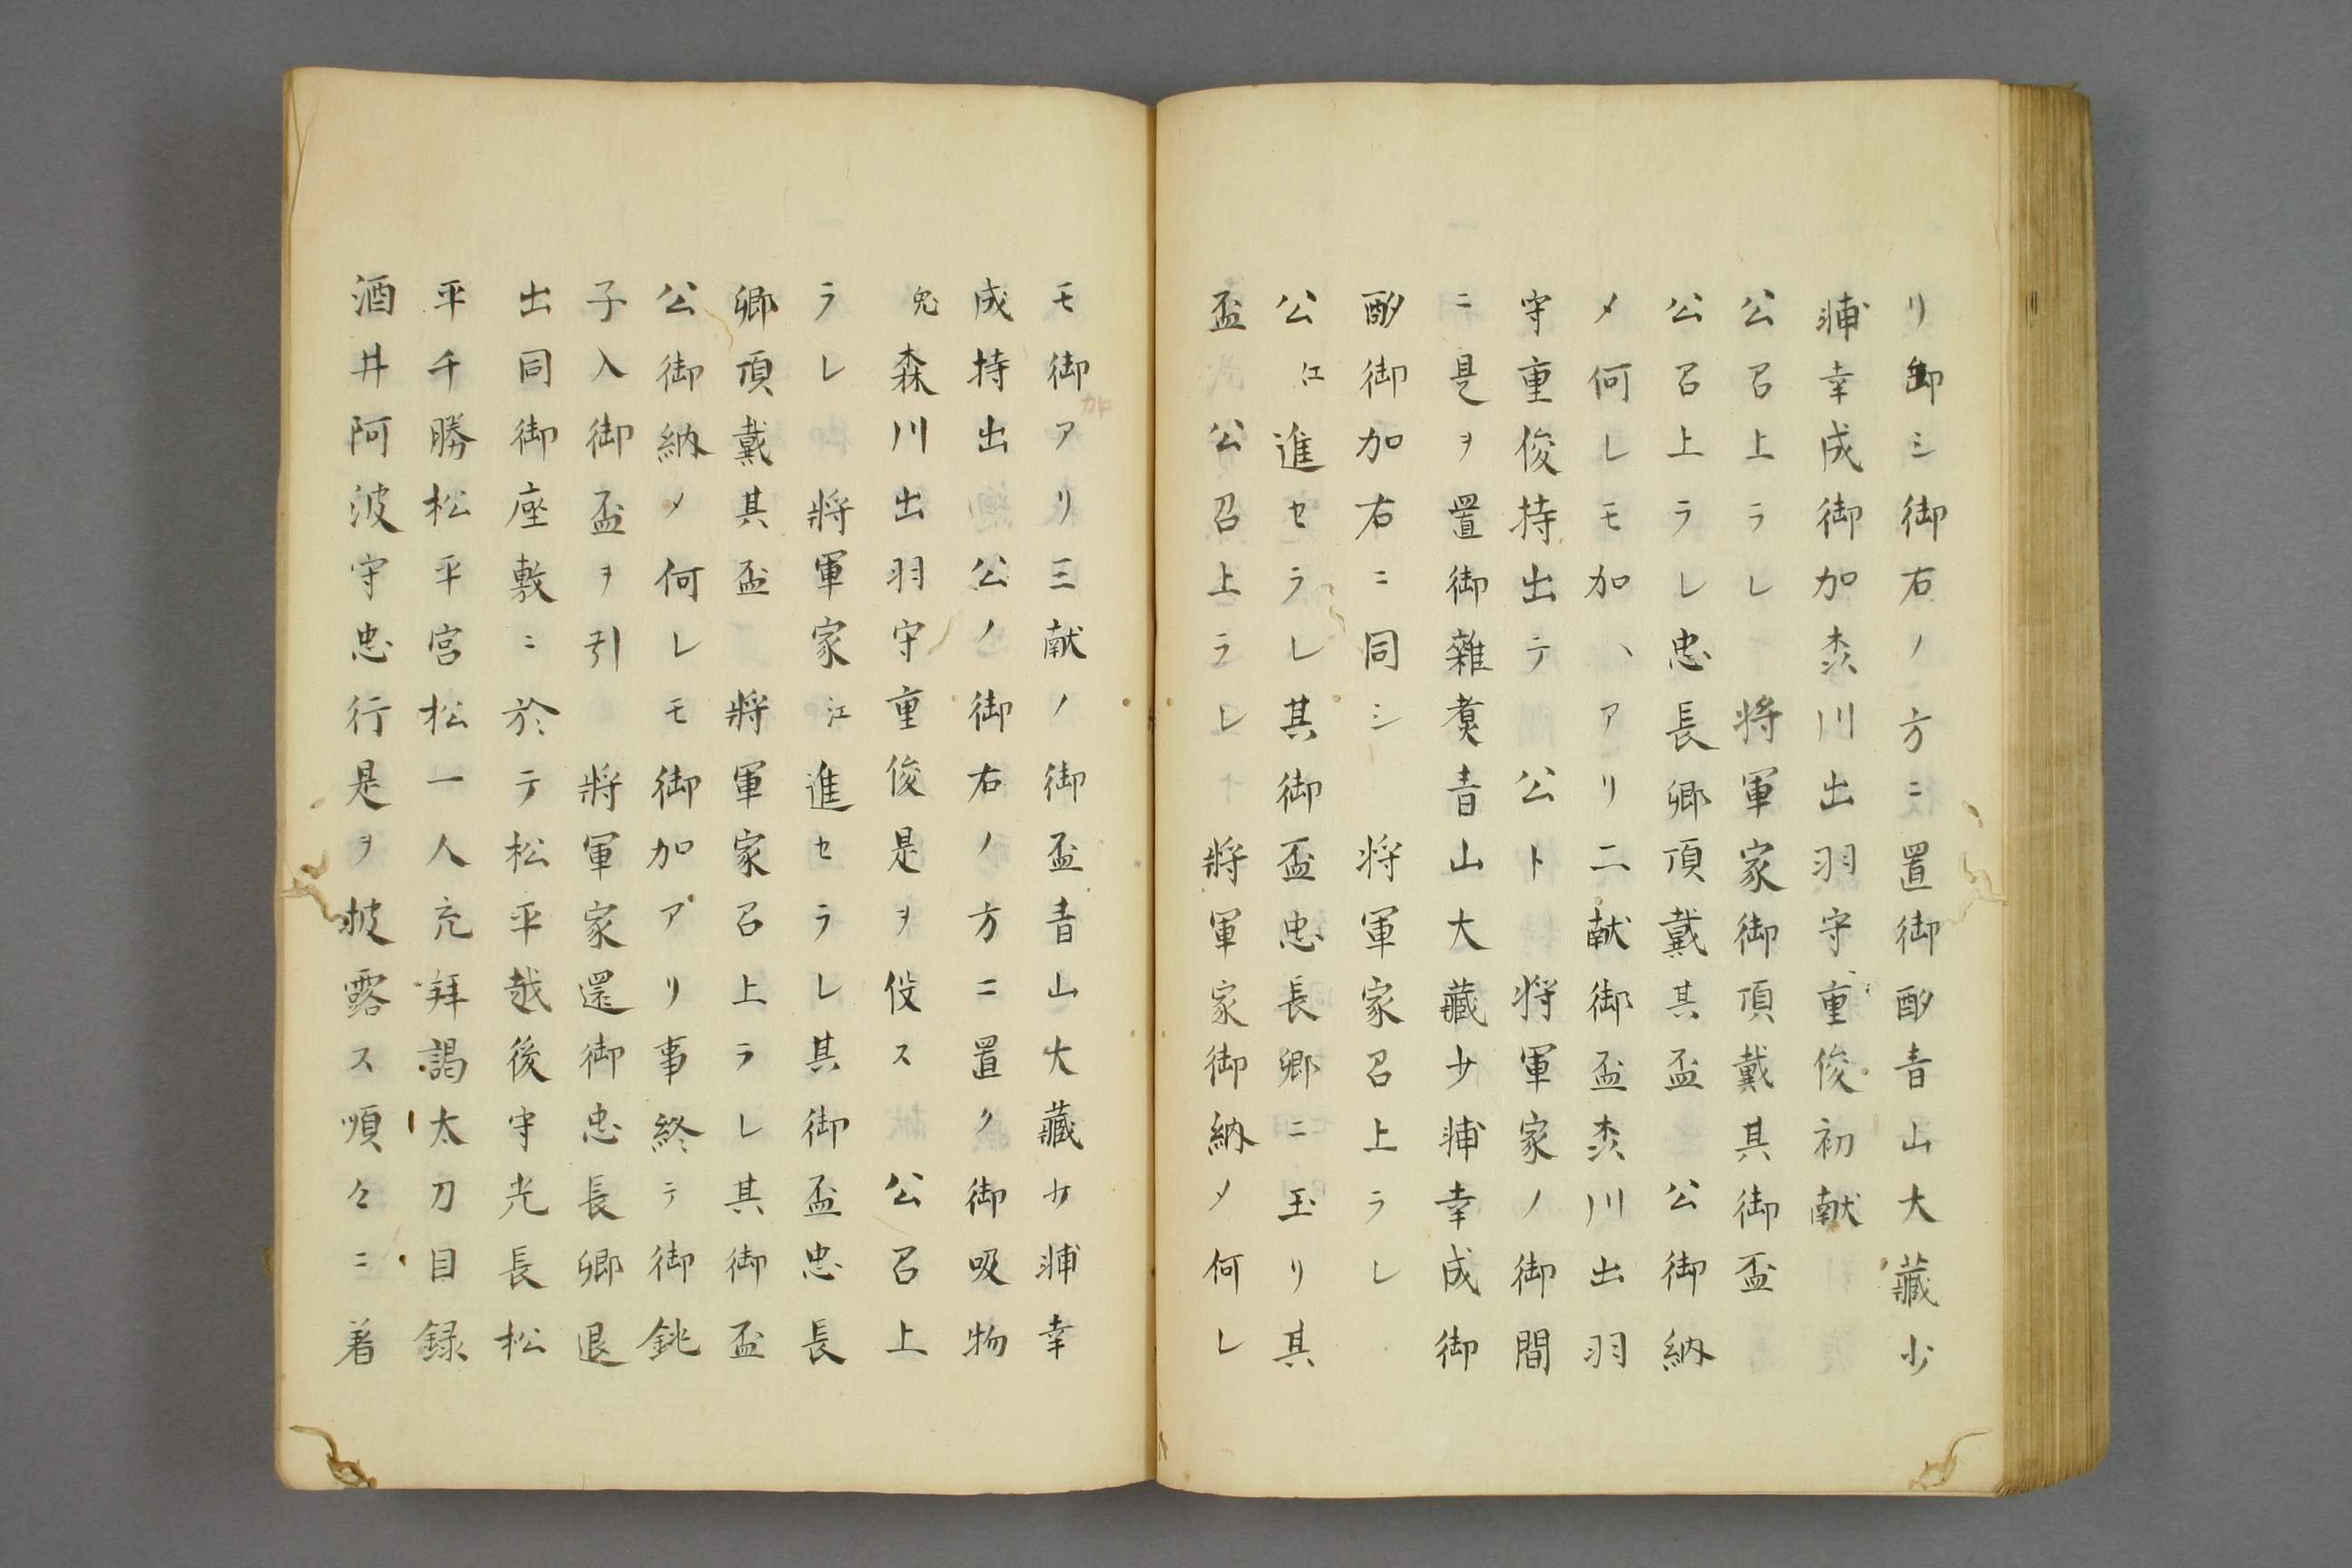 リ卸シ御右ノ方ニ置御酌青山大藏少
浦幸成御加森川出羽守重俊初献
公召上ラレ　将軍家御頂戴其御盃
公召上ラレ忠長卿頂戴其盃　公御納
メ何レモ加ヽアリ二献御盃森川出羽
守重俊持出テ　公ト　将軍家ノ御間
ニ是ヲ置御雜煮青山大藏少浦幸成御
酌御加右ニ同シ　将軍家召上ラレ
公江進セラレ其御盃忠長卿ニ玉リ其
盃　公召上ラレ　將軍家御納メ何レ
モ御加アリ三献ノ御盃青山大藏少浦幸
成持出　公ノ御右ノ方ニ置ク御吸物
兔　森川出羽守重俊是ヲ役ス　公召上
ラレ　將軍家江進セラレ其御盃忠長
卿頂戴其盃　將軍家召上ラレ其御盃
公御納メ何レモ御加アリ事終テ御銚
子入御盃ヲ引　將軍家還御忠長卿退
出同御座敷ニ於テ松平越後守光長松
平千勝松平宮松一人充拜謁太刀目録
酒井阿波守忠行是ヲ披露ス順々ニ着